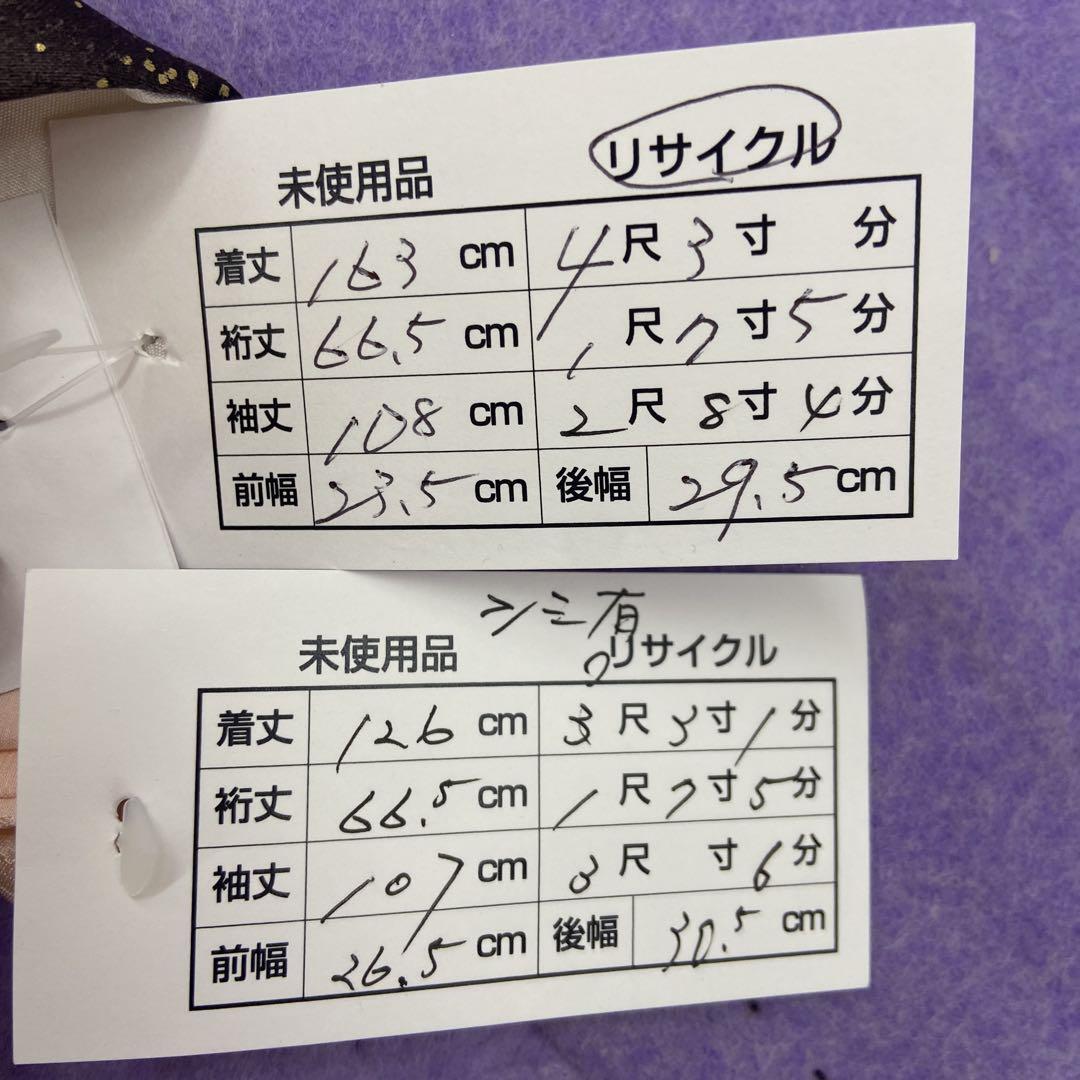 未使用品 リサイクル
着丈 163 cm 4 尺 3 寸 分
裄丈 66.5 cm 1 尺 7 寸 5 分
袖丈 108 cm 2 尺 8 寸 4 分
前幅 23.5 cm 後幅 29.5 cm
シミ有
未使用品 リサイクル
着丈 126 cm 3 尺 3 寸 1 分
裄丈 66.5 cm 1 尺 7 寸 5 分
袖丈 107 cm 尺 寸 6 分
前幅 26.5 cm 後幅 30.5 cm